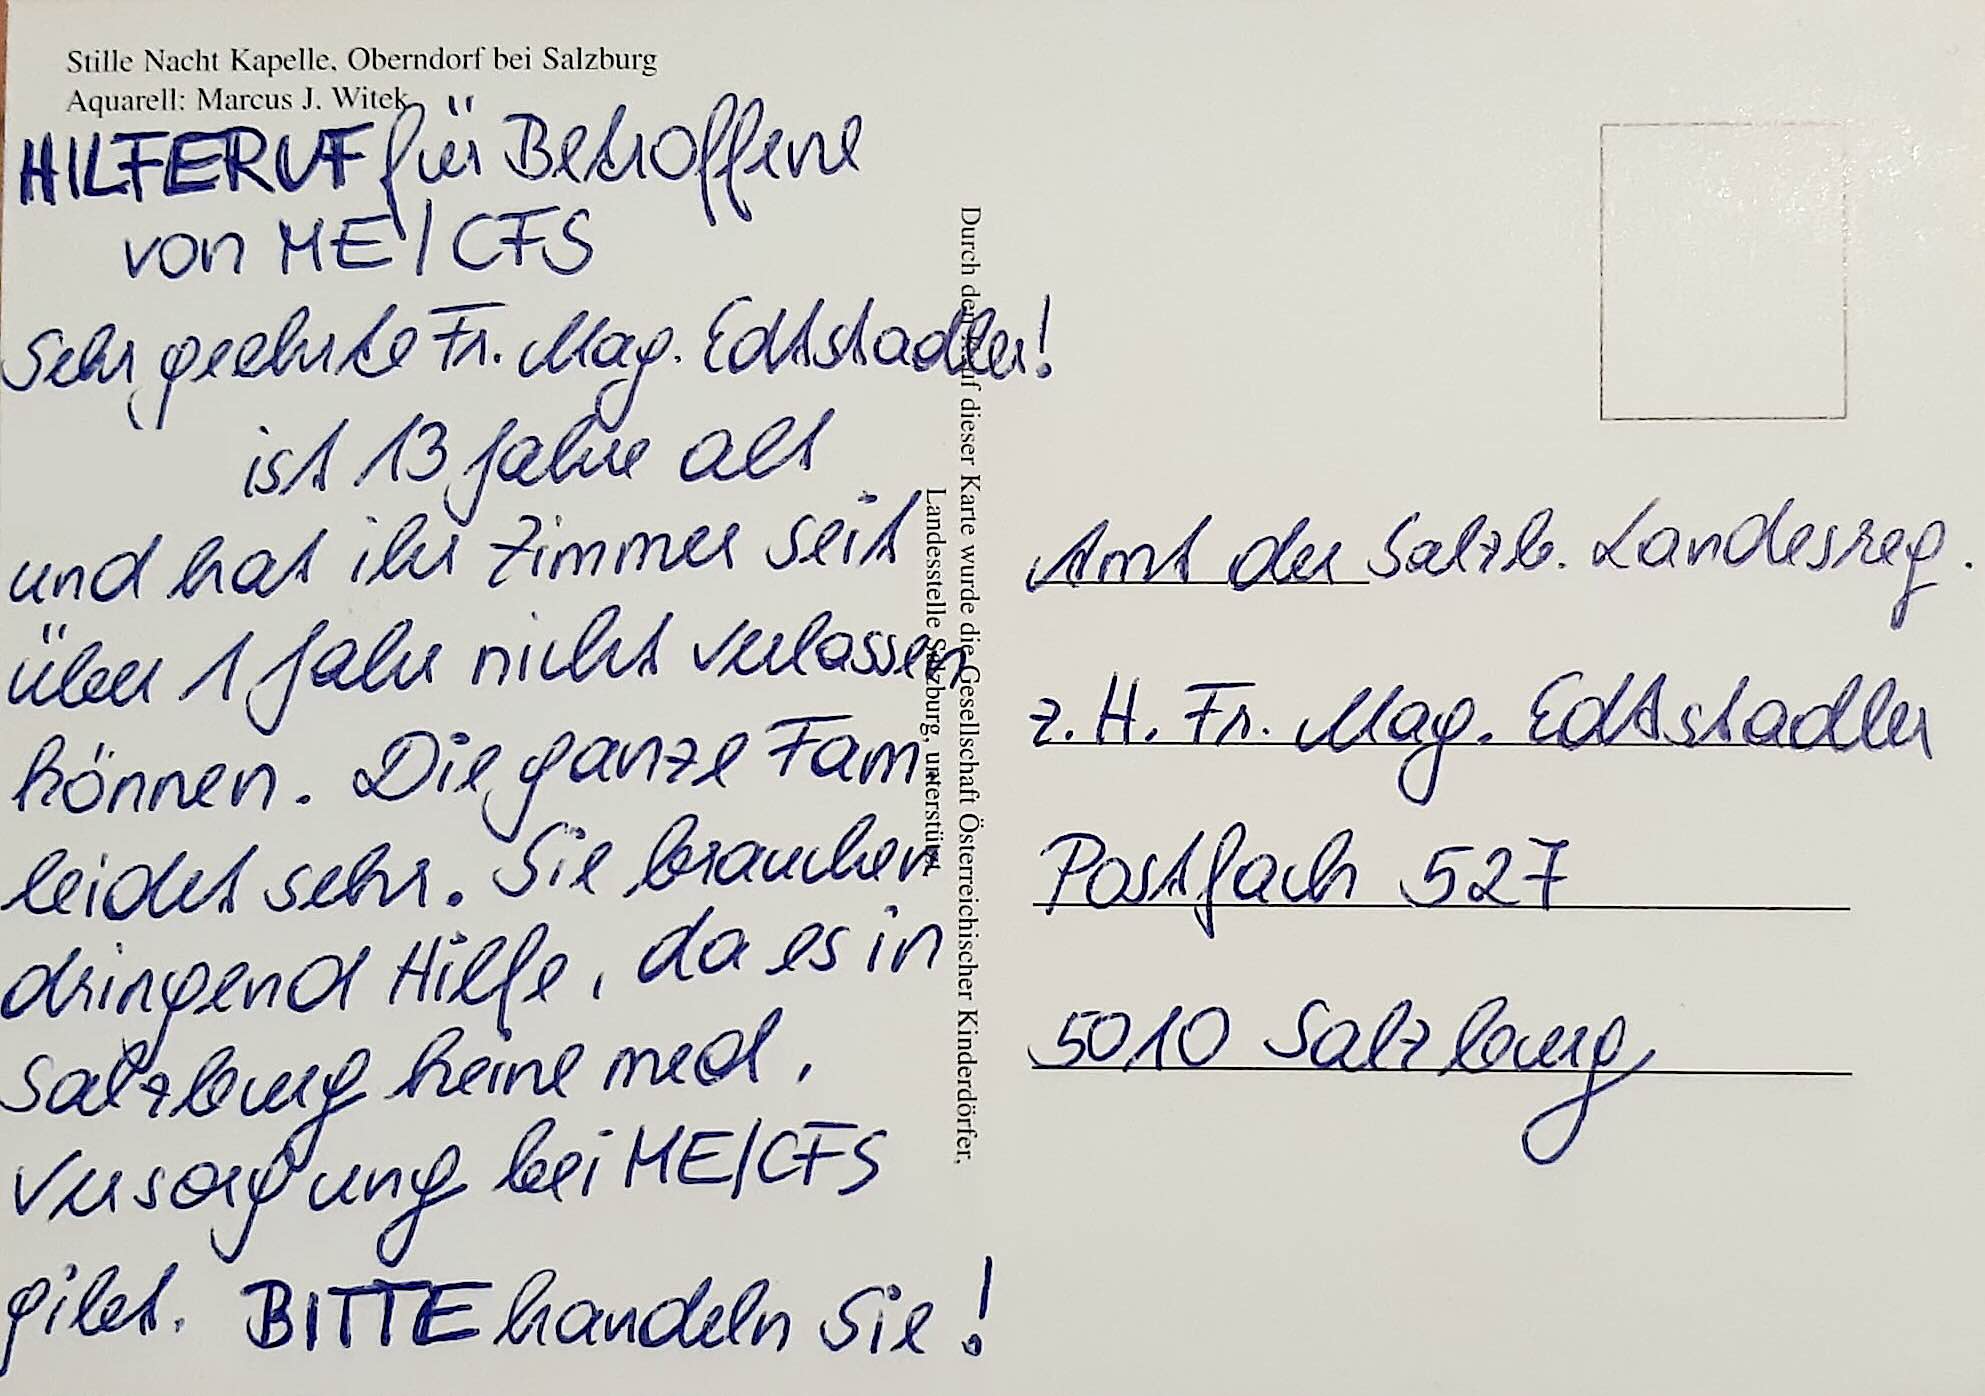 Stille Nacht Kapelle, Oberndorf bei Salzburg
Aquarell: Marcus J. Witek
HILFERUF für Betroffene
von ME/CFS
Sehr geehrte Fr. Mag. Edtstadler!
ist 13 Jahre alt
und hat ihr Zimmer seit
über 1 Jahr nicht verlassen
können. Die ganze Fam.
leidet sehr. Sie brauchen
dringend Hilfe, da es in
Salzburg keine med.
Versorgung bei ME/CFS
gibt. BITTE handeln Sie!
Durch den Kauf dieser Karte wurde die Gesellschaft Österreichischer Kinderdörfer,
Landesstelle Salzburg, unterstützt.
Amt der Salzb. Landesreg.
z. H. Fr. Mag. Edtstadler
Postfach 527
5010 Salzburg